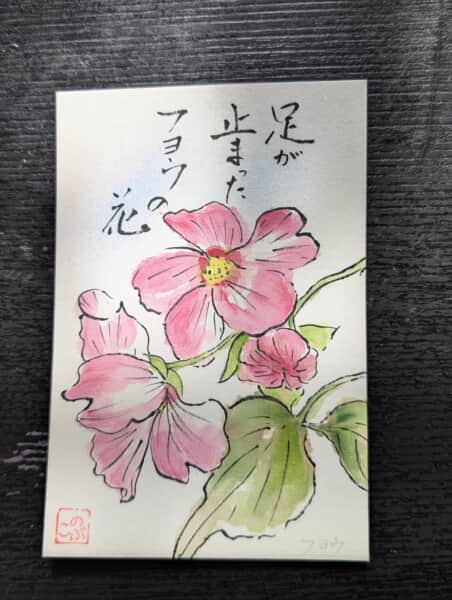 足が
止まった
フヨウの
花
フヨウ